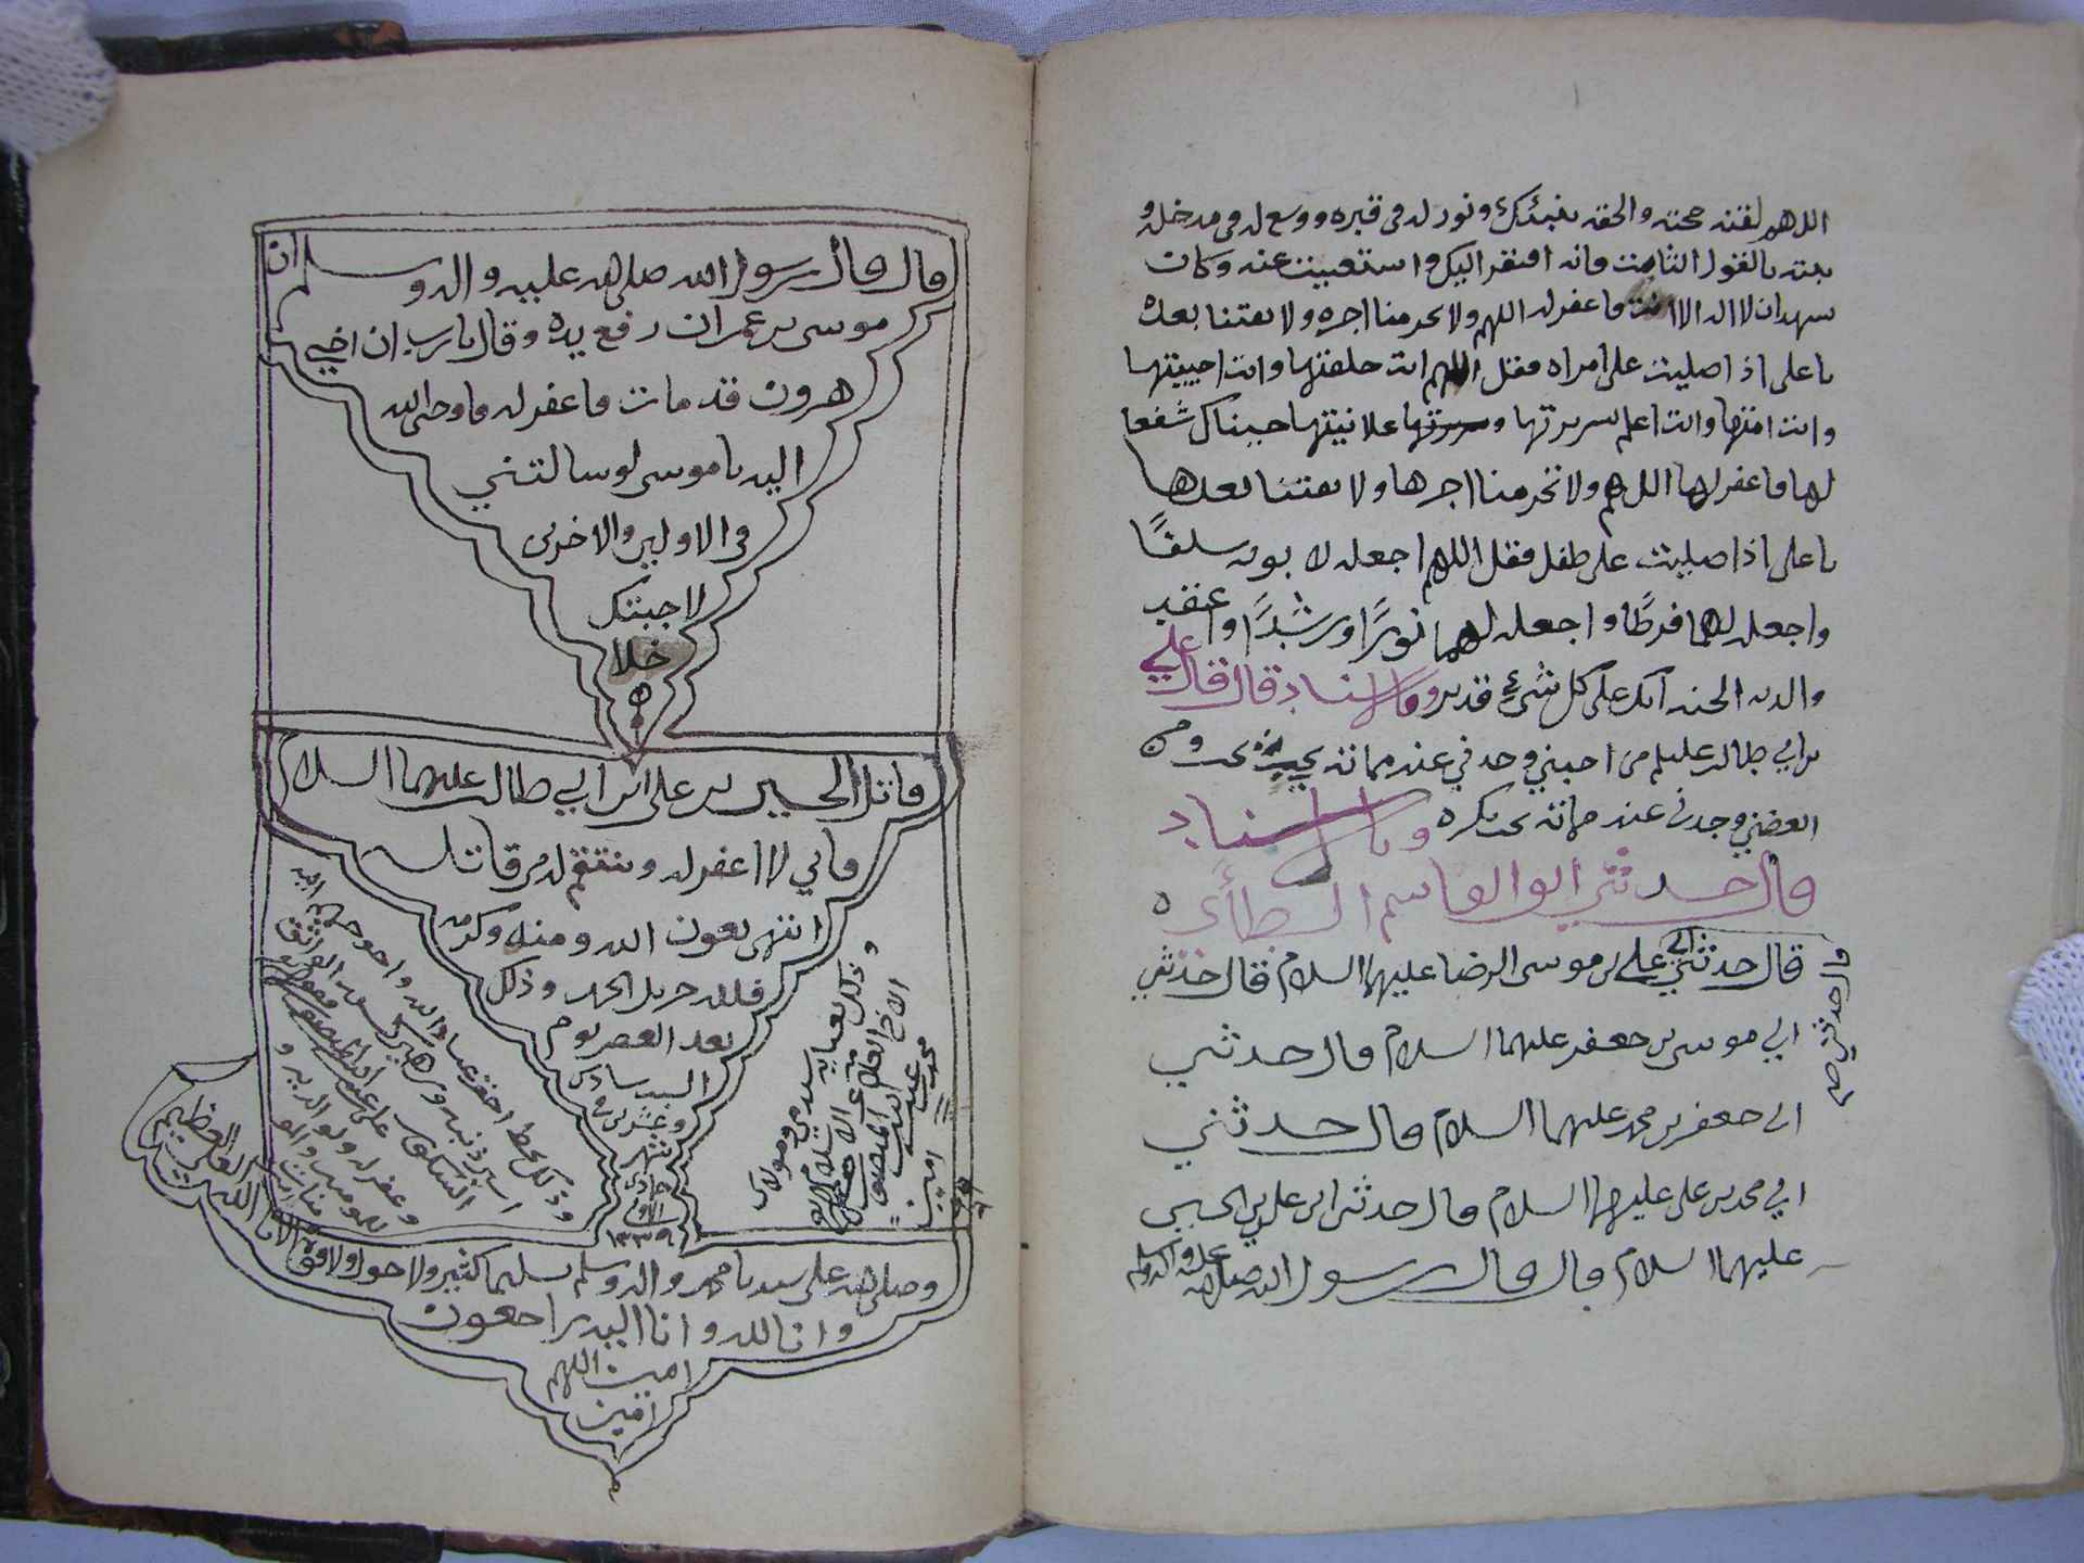 اللهم لقنه حجته والحقه بنبيك ونور له في قبره ووسع له في مدخله و
ثبته بالقول الثابت فانه افتقر اليك واستغنيت عنه وكان
يشهد ان لا اله الا انت فاغفر له اللهم ولا تحرمنا اجره ولا تفتنا بعده
يا علي اذا صليت على امراه فقل اللهم انت خلقتها وانت احييتها
وانت امتها وانت اعلم بسريرتها وعلانيتها جيناك شفعا
لها فاغفر لها اللهم ولا تحرمنا اجرها ولا تفتنا بعدها
يا علي اذا صليت على طفل فقل اللهم اجعله لابويه سلفًا
واجعله لهما فرطًا واجعله لهما نورًا ورشدًا واعقب
والديه الجنه انك على كل شيء قدير وبالاسناد قال قال علي
بن ابي طالب عليلم من احبني وجدني عند مماته بحيث يحب ومن
ابغضني وجدني عند مماته بحيث يكره وبالاسناد
قال حدثني ابو القاسم الطائي
قال حدثني ابي علي بن موسى الرضا عليهما السلام قال حدثني
قال حدثني
ابي موسى بن جعفر عليهما السلام قال حدثني
ابي جعفر بن محمد عليهما السلام قال حدثني
ابي محمد بن علي عليهما السلام قال حدثني ابي علي بن الحسين
عليهما السلام قال قال رسول الله صلى الله عليه واله وسلم
قال قال رسول الله صلى الله عليه واله وسلم ان
موسى بن عمران رفع يده وقال يا رب ان اخي
هرون قد مات فاغفر له فاوحى الله
اليه يا موسى لو سالتني
في الاولين والاخرين
لاجبتك
خلا
قاتل الحسين بن علي ابن ابي طالب عليهما السلام
فاني لا اغفر له وينتقم له من قاتله
انتهى بعون الله ومنه وكرمه
فلله جزيل الحمد وذلك
بعد العصر يوم
السبت سادس
وعشرين
شهر
جمادى
الاولى
١٣٣٩
وذلك بعناية سيدي ومولاي
الاخ العلامة
محمد
امين
وذلك بخط احقر عباد الله واحوجهم اليه
اسير ذنبه ورهين كسبه الواثق
وغفر له ولوالديه و
للمومنين والمو
منات امين
وصلى الله على سيدنا محمد واله وسلم تسليما كثيرا ولا حول ولا قوة الا بالله العلي العظيم
وانا لله وانا اليه راجعون
امين اللهم
امين